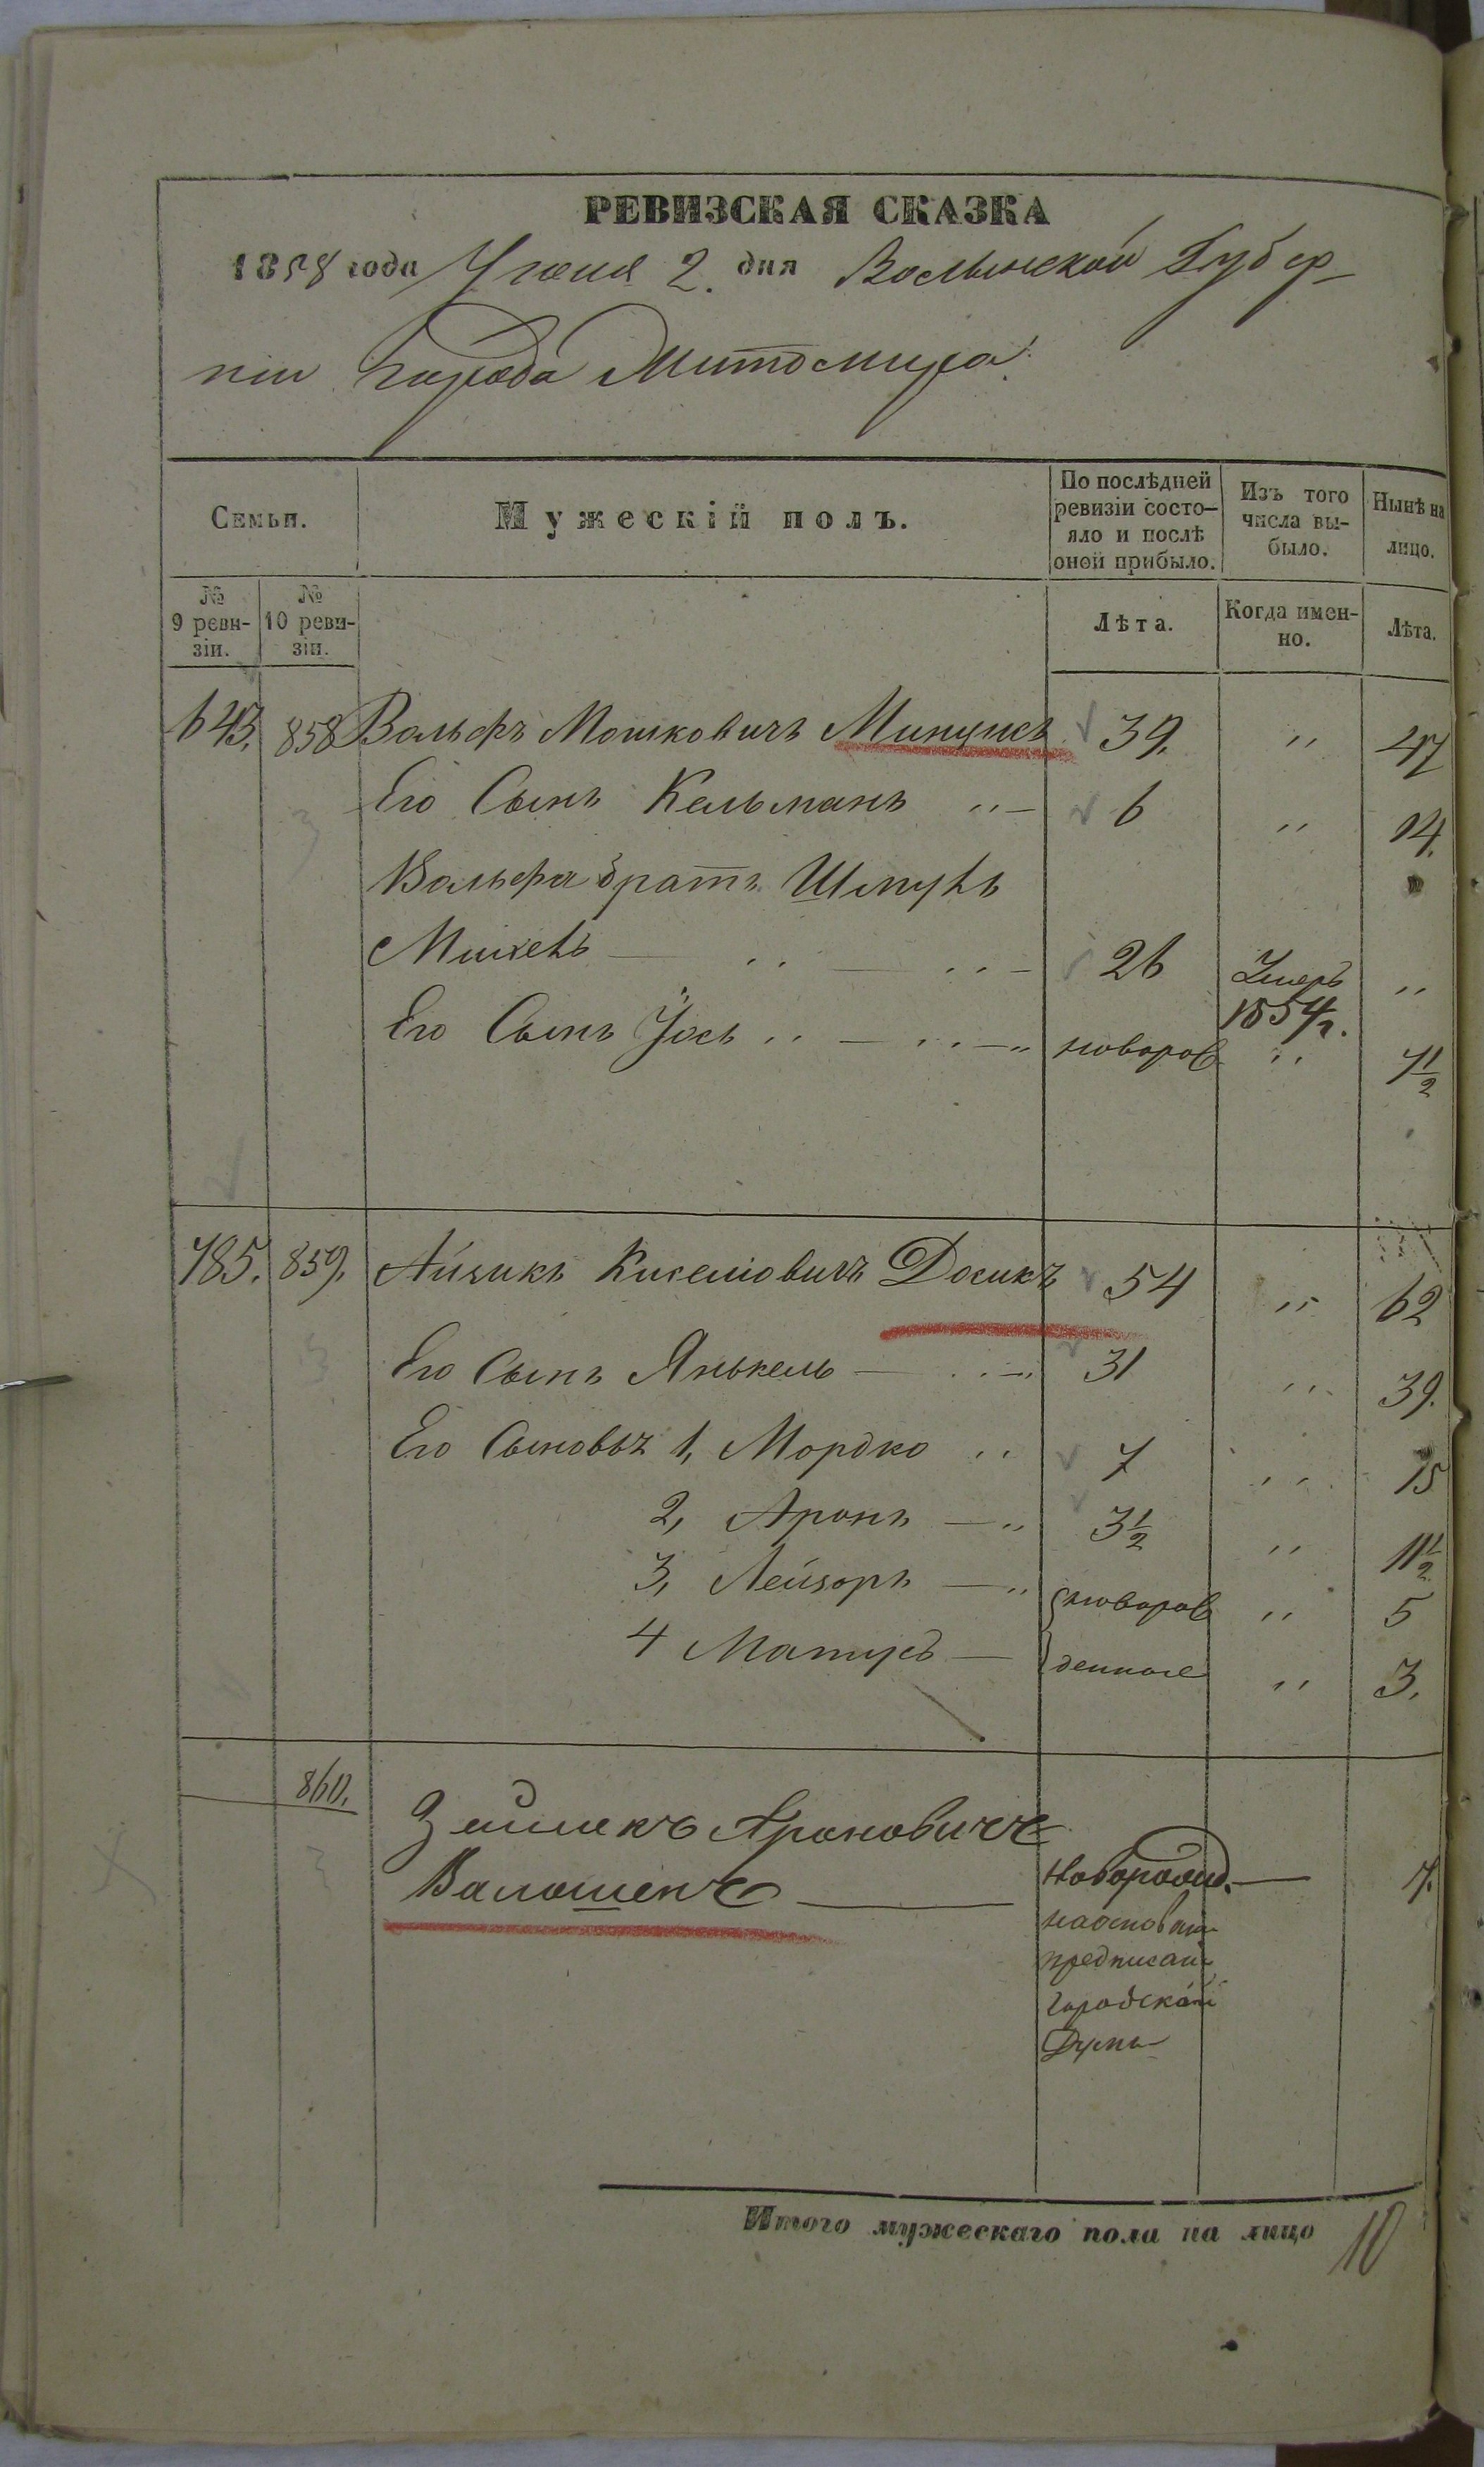 РЕВИЗСКАЯ СКАЗКА
1858 года Іюня 2. дня Волынской Губер-
ніи города Житомира.
Семьи.
Мужескій полъ.
По послѣдней ревизіи состо-
яло и послѣ оной прибыло.
Изъ того числа вы-
было.
Нынѣ на лицо.
№ 9 реви-
зіи.
№ 10 реви-
зіи.
Лѣта.
Когда имен-
но.
Лѣта.
643. 858 Вольфъ Мошковичъ 39. " 47
Его Сынъ Кельманъ " — 6 " 14.
Вольфа братъ Шмуль
— " — " — 26 Умеръ "
1854 г.
Его Сынъ Іось " — " — " новорож " 7½
785. 859. Айзикъ Киселіовичъ Досикъ 54 " 62
Его Сынъ Янькель — " — " 31 " 39.
Его Сыновья 1, Мордко " 7 " 15
2, Аронъ — " 3½ " 11½
3, Лейзоръ — " новорож " 5
4 Матусъ — денные " 3.
860.
Зейликъ Ароновичъ
Валошенъ — Новорожд. — 7.
на основан
предписан
городской
Думы
Итого мужескаго пола на лицо 10